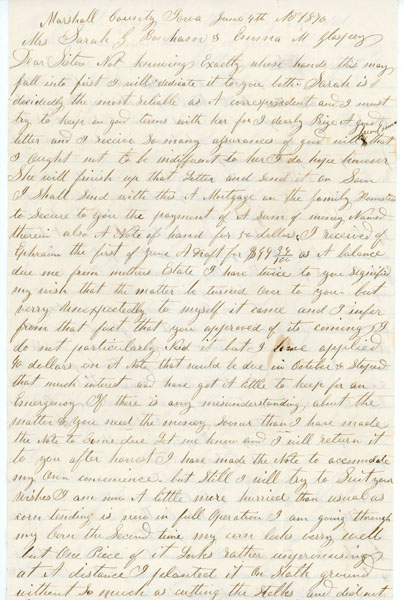 Marshall County Iowa June 9th AD 1870
Mrs Sarah G & Emma M
Dear Sisters Not knowing Exactly whose hands this may
fall into first I will dedicate it to you both. Sarah is
decidedly the most reliable as A correspondent and I must
try to keep on good terms with her for I dearly Prize A good
letter and I receive So many assurances of good will that
I ought not to be indifferent to her I do hope however
She will finish up that Letter and Send it on Soon
I shall Send with this A Mortgage on the family Homestead
to Secure to you the payment of A Sum of money Named
therein also A Note of hand for 50 dollars, I received of
Ephraim the first of June A draft for $99 as A balance
due me from mothers Estate I have twice to you Signified
my wish that the matter be turned over to you but
verry Unexpectedly to myself it came and I infer
from that fact that you approved of its coming I
do not particularly Need it but I have applied
dollars on A Note that would be due in October & Stoped
that much interest and have got A little to keep for an
Emergency If there is any misunderstanding about the
matter & you need the money Sooner than I have made
the Note to Come due Let me know and I will return it
to you after harvest I have made the Note to accomodate
my Own convenience. but Still I will try to Suit your
wishes I am now A little more hurried than usual as
corn tending is now in full Operation I am going through
my Corn the Second time my corn looks verry well
but One Piece of it Looks rather unpromising
at A distance I planted it on Stalk ground
without So much as cutting the Stalks and did not